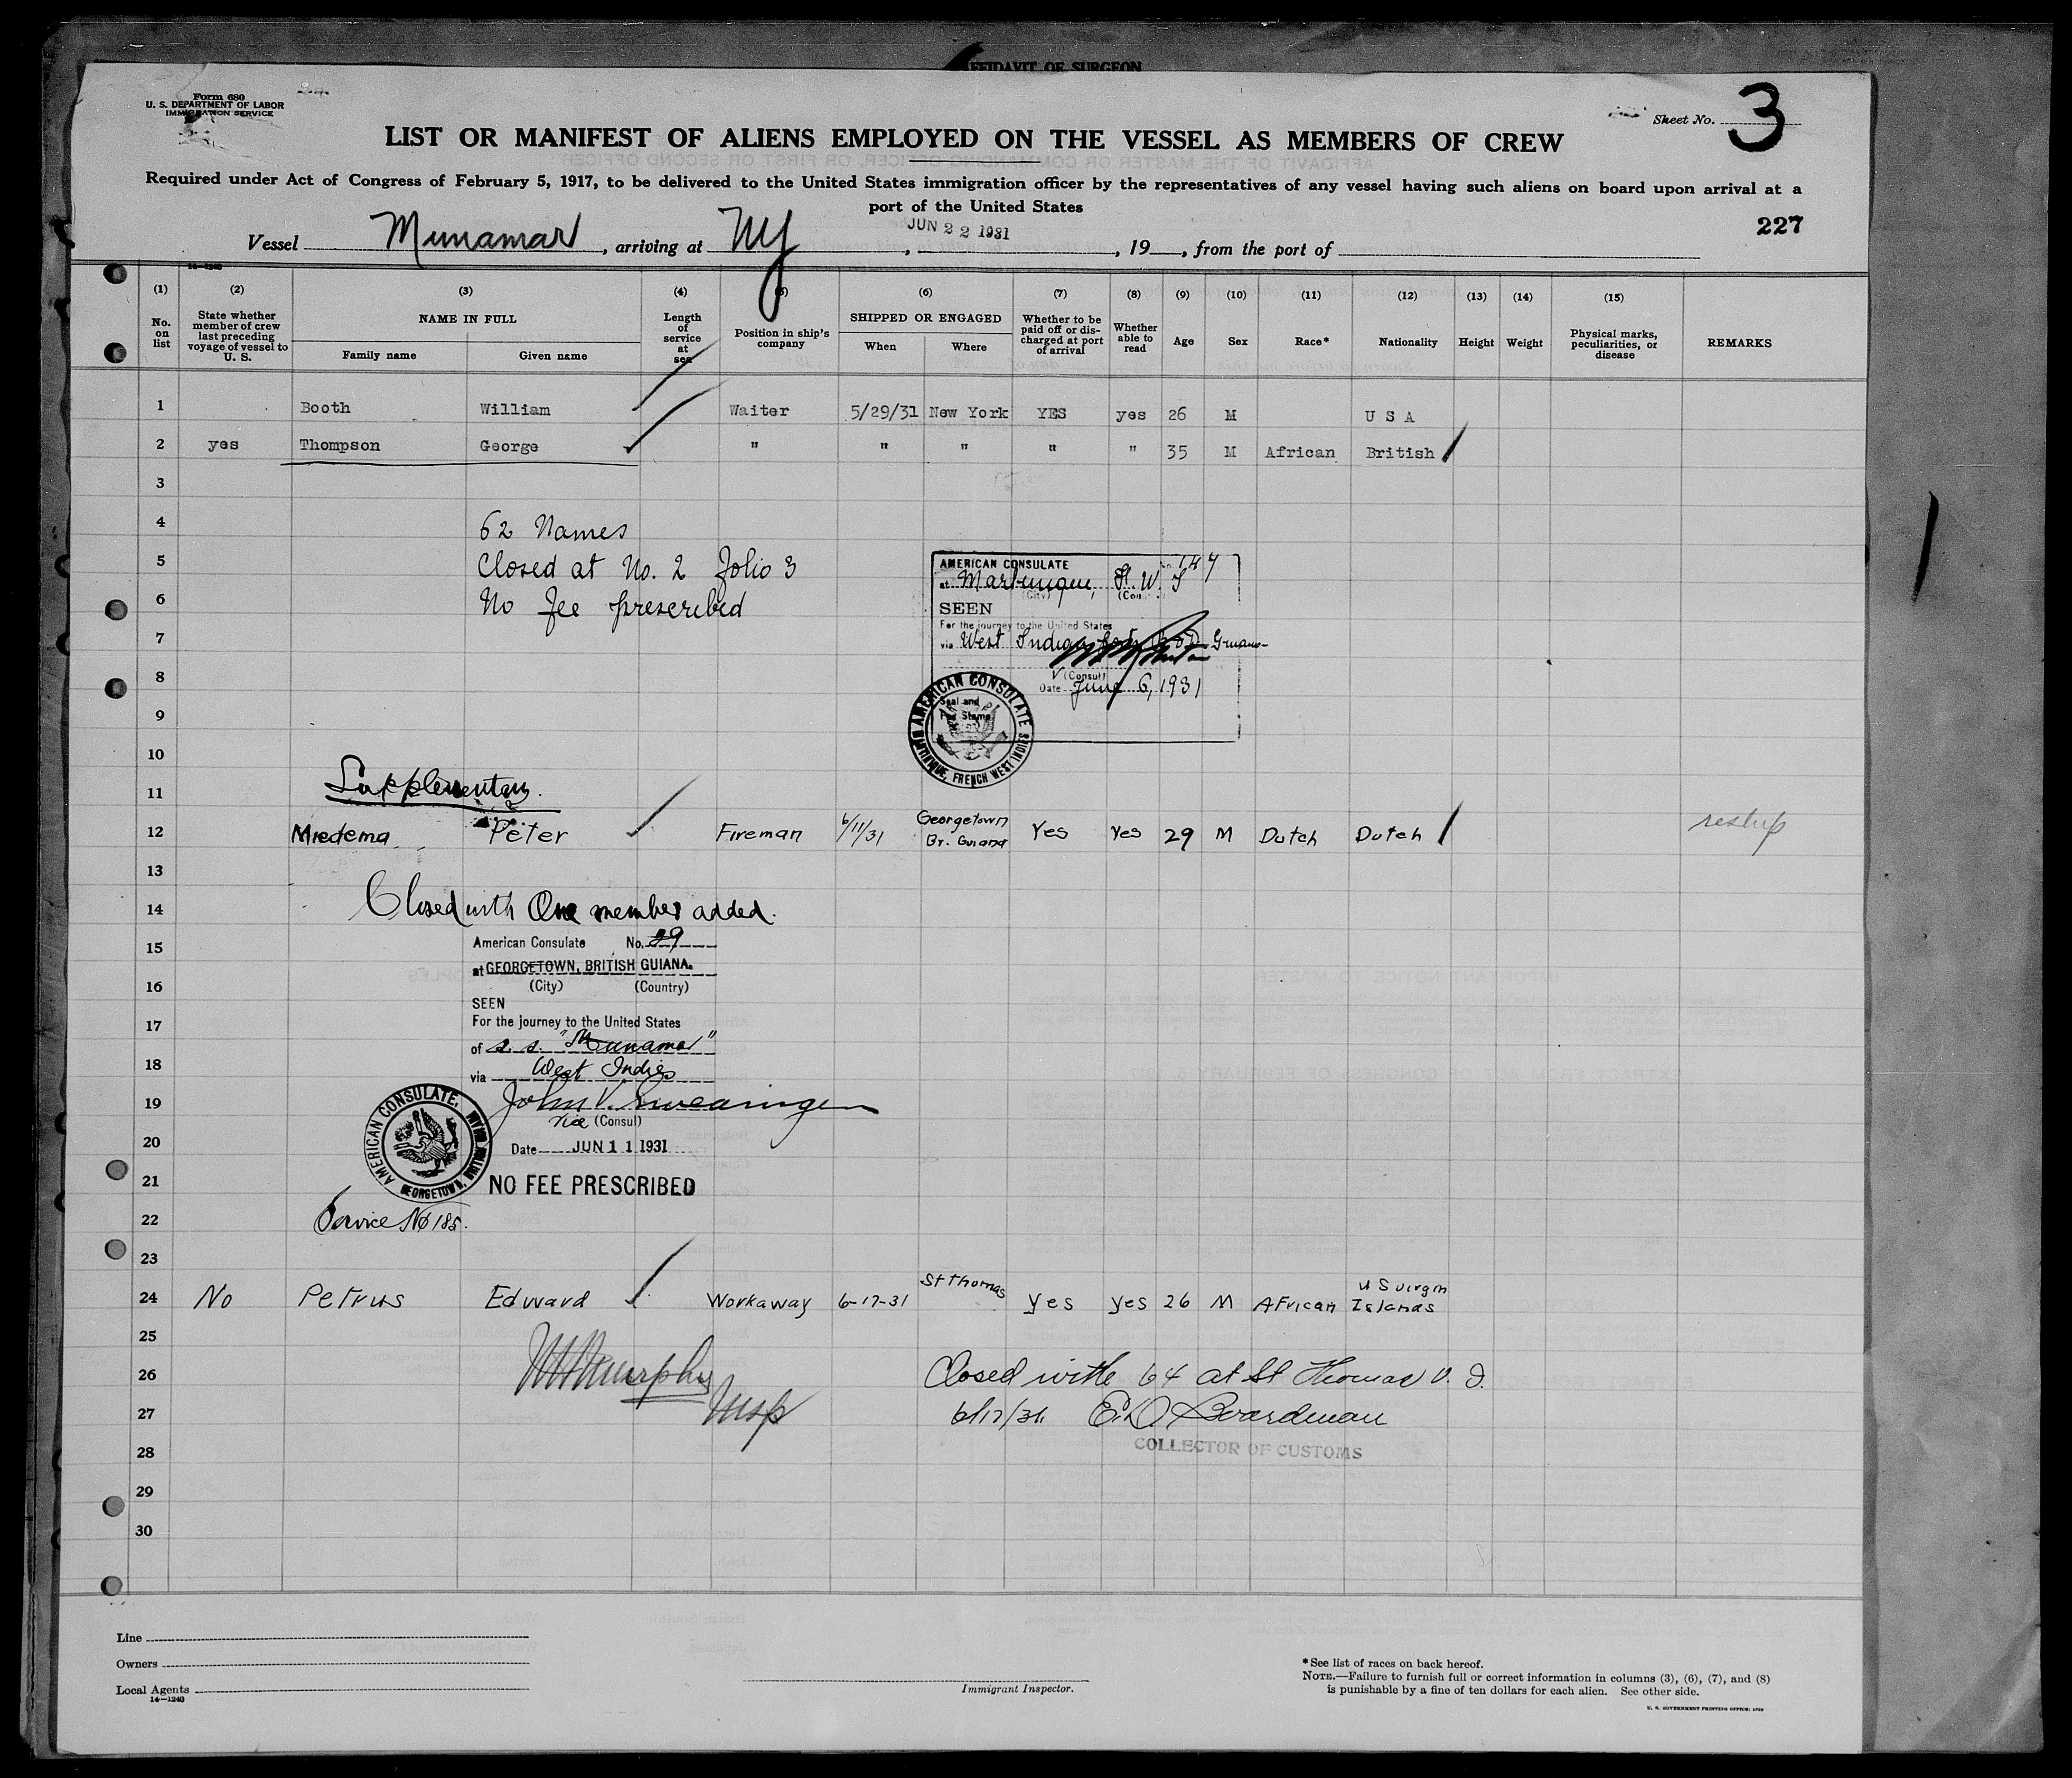 FFIDAVIT OF SURGEON
Form 680
U. S. DEPARTMENT OF LABOR
IMMIGRATION SERVICE
Sheet No. 3
LIST OR MANIFEST OF ALIENS EMPLOYED ON THE VESSEL AS MEMBERS OF CREW
Required under Act of Congress of February 5, 1917, to be delivered to the United States immigration officer by the representatives of any vessel having such aliens on board upon arrival at a
port of the United States
227
Vessel Munamar, arriving at NY, JUN 22 1931, 19__, from the port of
14—1240
(1) (2) (3) (4) (5) (6) (7) (8) (9) (10) (11) (12) (13) (14) (15)
No. on list
State whether member of crew last preceding voyage of vessel to U. S.
NAME IN FULL
Family name Given name
Length of service at sea
Position in ship's company
SHIPPED OR ENGAGED
When Where
Whether to be paid off or discharged at port of arrival
Whether able to read
Age Sex Race* Nationality Height Weight
Physical marks, peculiarities, or disease
REMARKS
1 Booth William Waiter 5/29/31 New York YES yes 26 M U S A
2 yes Thompson George " " " " " 35 M African British
3
4 62 Names
5 Closed at No. 2 Folio 3
6 No fee prescribed
AMERICAN CONSULATE
at Martinique, F. W. I
(City)
SEEN
For the journey to the United States
via West Indies
7
(Consul)
8 Date June 6, 1931
Seal and
Fee Stamp
AMERICAN CONSULATE MARTINIQUE, FRENCH WEST INDIES
9
10
11 Supplementary.
12 Miedema Peter Fireman 6/11/31 Georgetown Br. Guiana Yes Yes 29 M Dutch Dutch
13
14 Closed with One member added.
15 American Consulate No. 29
at GEORGETOWN, BRITISH GUIANA.
16 (City) (Country)
SEEN
17 For the journey to the United States
of s. s. "Munamar"
18 via West Indies
19 John V. Swearingen
Vice (Consul)
20 Date JUN 11 1931
AMERICAN CONSULATE, GEORGETOWN, BRITISH GUIANA
21 NO FEE PRESCRIBED
22 Service No 185.
23
24 No Petrus Edward Workaway 6-17-31 St Thomas yes yes 26 M African U S Virgin Islands
25
26 Closed with 64 at St Thomas V. I.
27 6/17/31 E.D. Boardman
28 COLLECTOR OF CUSTOMS
29
30
Line
Owners
Local Agents
14—1240
Immigrant Inspector.
*See list of races on back hereof.
NOTE.—Failure to furnish full or correct information in columns (3), (6), (7), and (8)
is punishable by a fine of ten dollars for each alien. See other side.